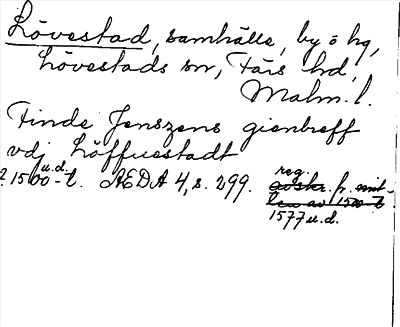 Lövestad, samhälle, by o hg,
Lövestads sn, Färs hd,
Malm. l.
Finde Jenszens gienbreff
vdj Löffuestadt
? 1500-t. u.d. ÆDA 4, s. 299. reg. avskr. fr. mit-
ten av 1500-t.
1577 u.d.